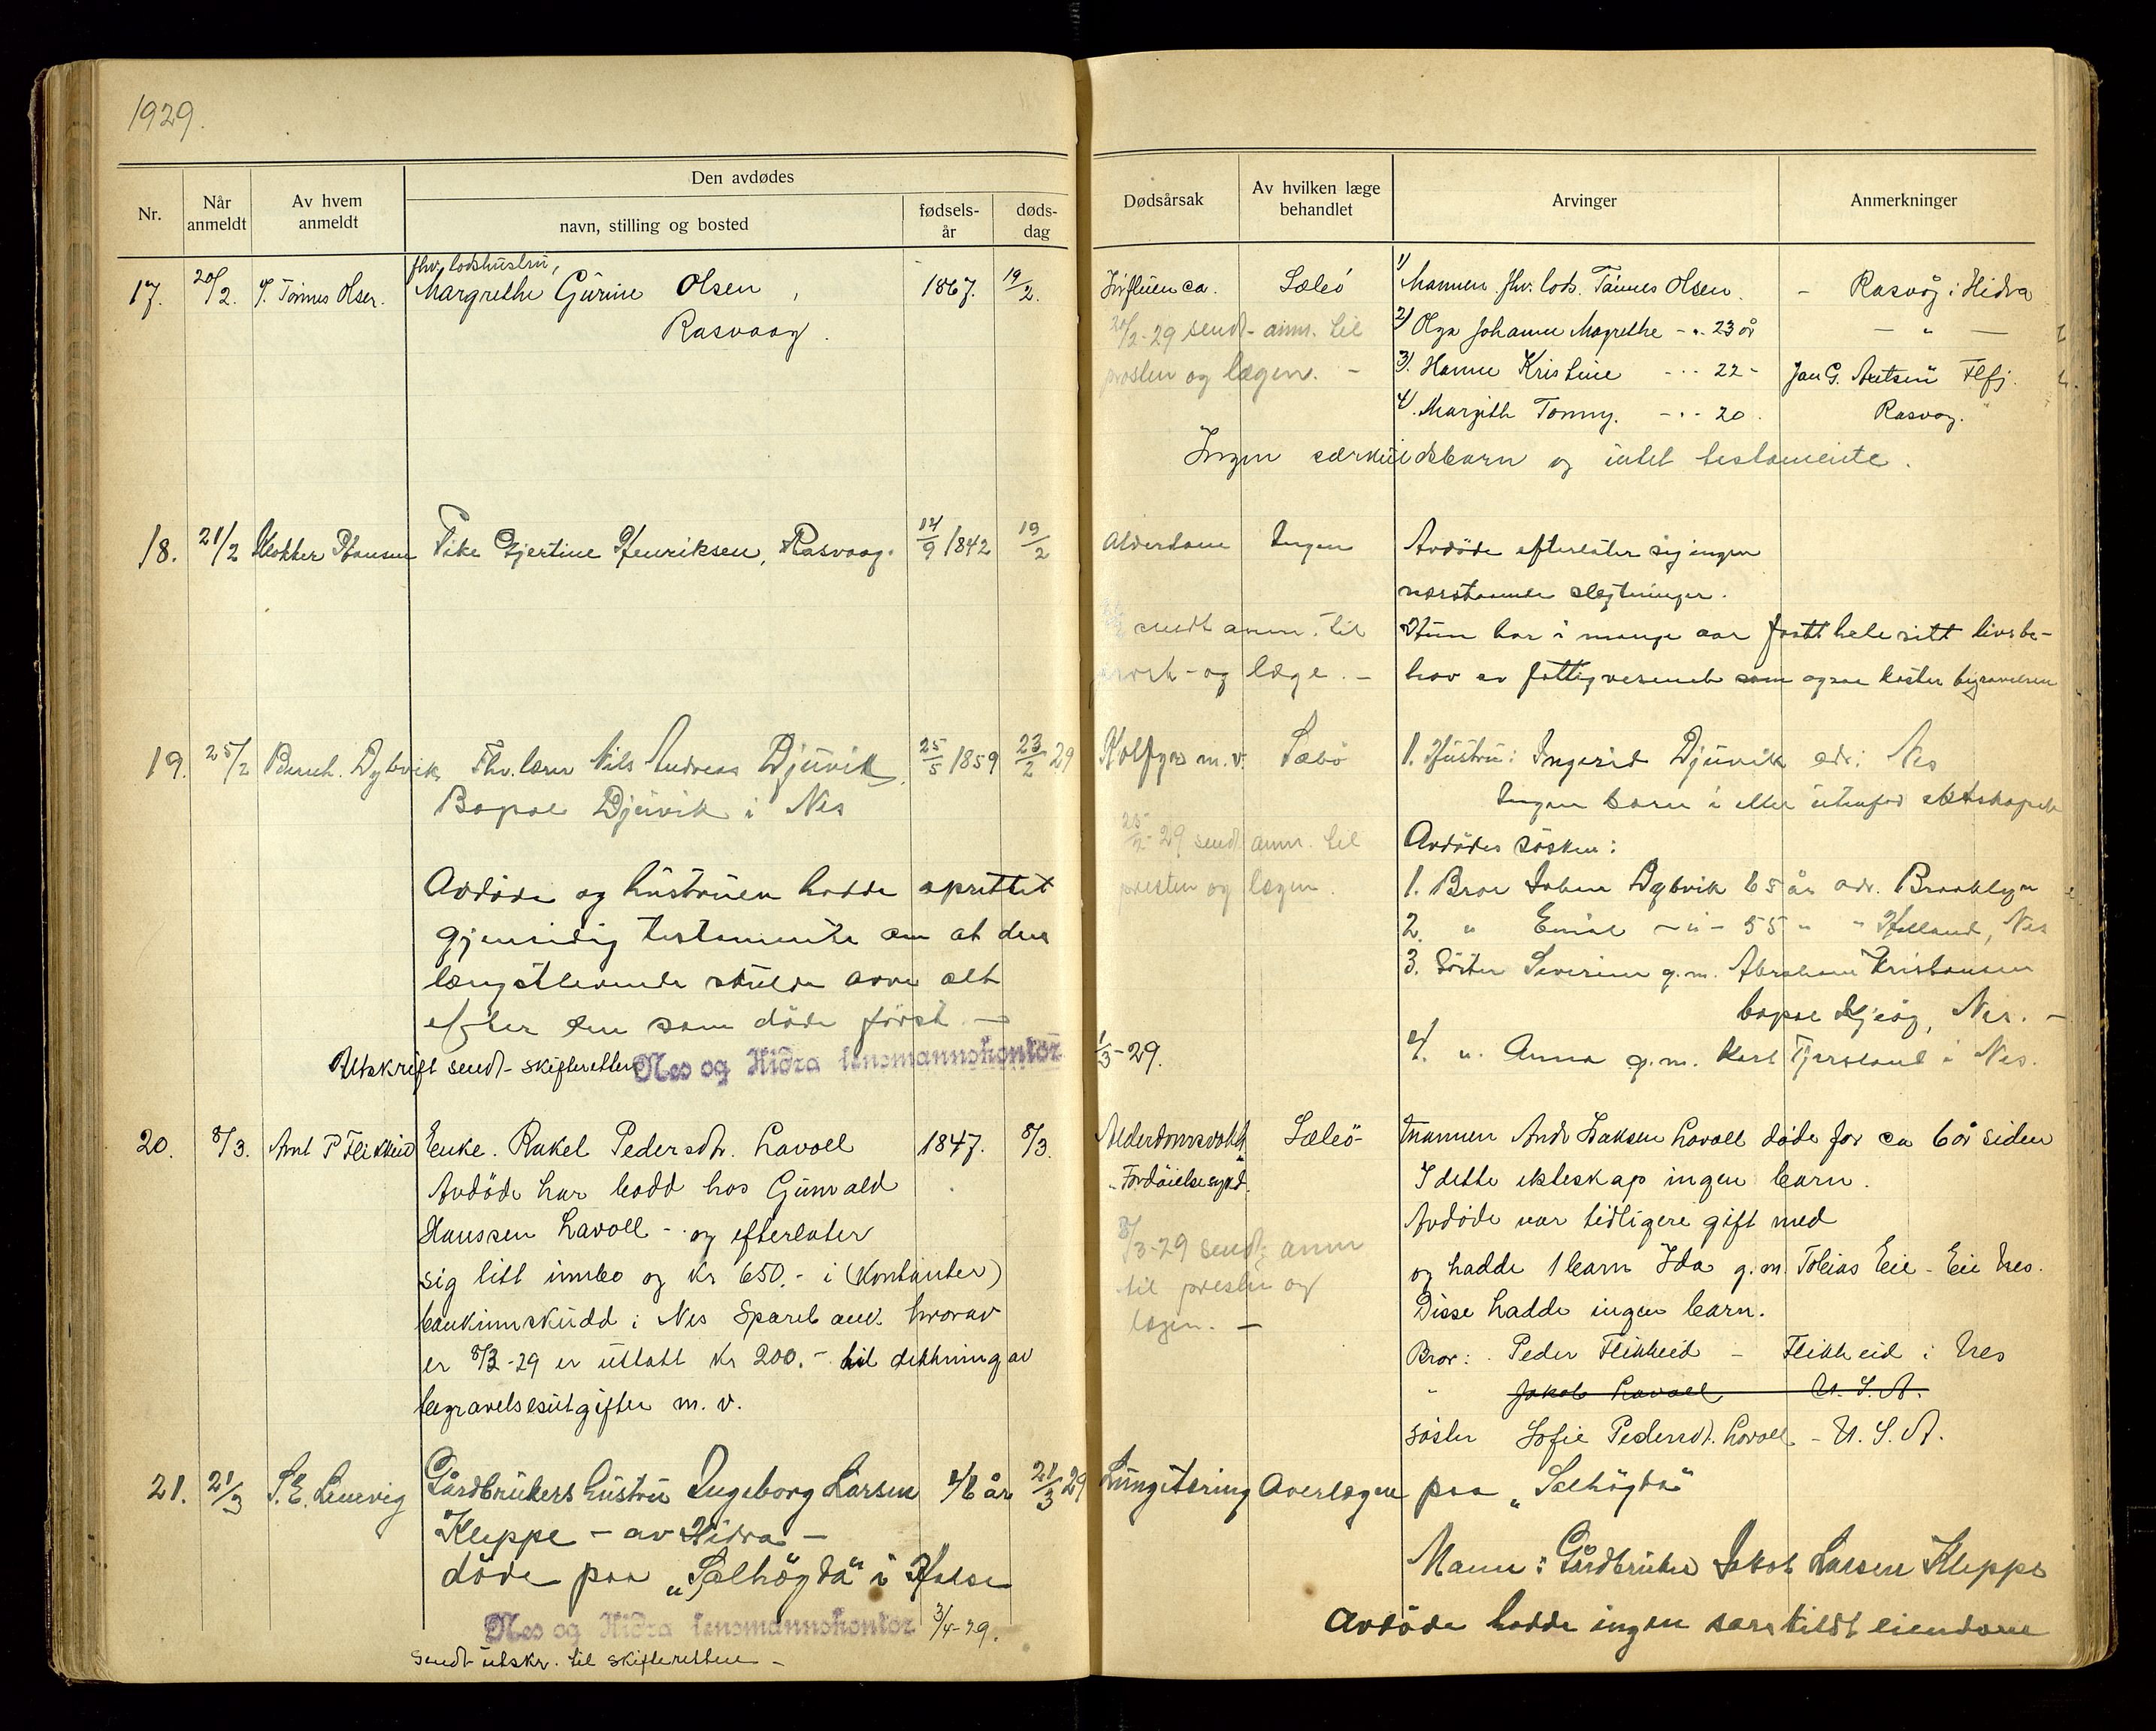 1929.
Nr.
Når anmeldt
Av hvem anmeldt
Den avdødes
navn, stilling og bosted
fødsels-år
døds-dag
Dødsårsak
Av hvilken læge behandlet
Arvinger
Anmerkninger
17. 20/2. T. Tönnes Olsen. fhv. lodshustru,
Margrethe Gurine Olsen, 1867. 19/2.
Rasvaag.
Influenca. Sæbö
20/2-29 sendt anm. til
presten og lægen. -
1) Mannen fhv. lods. Tönnes Olsen. - Rasvåg i Hidra
2) Olga Johanne Magrethe - " 23 år - " -
3). Hanne Kristine - " 22 - Jan G. Flfj.
4). Margith Tonny. - " 20. Rasvåg.
Ingen særkuldsbarn og intet testamente.
18. 21/2 Klokker Hansen Pike Gjertine Henriksen, Rasvaag. 14/9 1842 19/2
Alderdom Ingen
sendt anm. til
prest- og læge. -
Avdöde efterlater sig ingen
nærstaaende slegtninger.
Hun har i mange aar faatt hele sitt livsbe-
hov av fattigvesenet som ogsaa koster begravelsen
19. 25/2 Bernh. Dybvik Fhv. lærer Nils Andreas Djuvik. 25/5 1859 23/2 29
Bopæl Djuvik i Nes
Avdöde og hustruen hadde oprettet
gjensidig testamente om at den
længstlevende skulde arve alt
efter den som döde först. -
Utskrift sendt skifteretten Nes og Hidra lensmannskontor 1/3-29.
m. v. Sæbö
25/2-29 sendt anm. til
presten og lægen.
1. Hustru: Ingerid Djuvik adr: Nes
Ingen barn i eller utenfor ektskapet
Avdödes sösken:
1. Bror Johan Dybvik 65 år adr. Brooklyn
2. " Emil - " - 55 " " Helland, Nes
3. Söster Severine g.m. Abraham Kristensen
bopæl Nes. -
4. " Anna g.m. Karl Tjersland i Nes.
20. 8/3. Arnt P Flikkeid Enke. Rakel Pedersdtr. Lavoll 1847. 8/3.
Avdöde har bodd hos Gunvald
Hanssen Lavoll - og efterlater
sig litt innbo og kr 650.- i (Kontanter)
bankinnskudd i Nes Sparebank. hvorav
er 8/3-29 er uttatt kr 200.- til dekkning av
begravelsesutgifter m. v.
Alderdomsvakh. Sæbö-
"Fordöielsesykd.
8/3-29 sendt anm
til presten og
lægen. -
Mannen Andr Isaksen Lavoll döde for ca 6 år siden
I dette ekteskap ingen barn.
Avdöde var tidligere gift med
og hadde 1 barn Ida g.m. Tobias Eie - Eie Nes.
Disse hadde ingen barn.
Bror: Peder Flikkeid - Flikkeid i Nes
" Jakob Lavoll U.S.A.
söster Sofie Pedersdt. Lavoll - U.S.A.
21. 21/3 S. E. Lenevig Gårdbrukers hustru Ingeborg Larsen 46 år 21/3 29
Kleppe - av Hidra -
döde paa "Solhögda" i Halse
Nes og Hidra lensmannskontor 3/4-29.
Sendt utskr. til skifteretten -
Lungetæring Overlægen paa "Solhögda"
Mann: Gårdbruker Jakob Larsen Kleppe
Avdöde hadde ingen særskildt eiendom